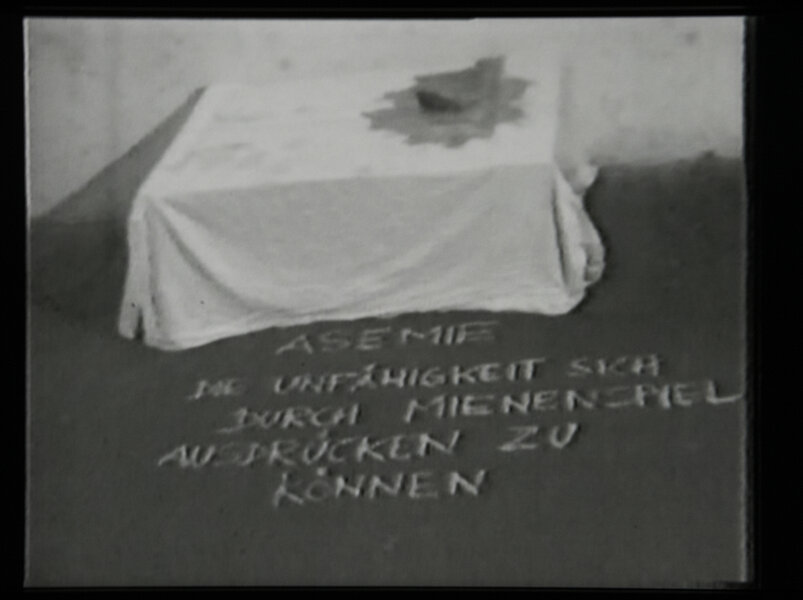 ASEMIE
DIE UNFÄHIGKEIT SICH
DURCH MIENENSPIEL
AUSDRÜCKEN ZU
KÖNNEN